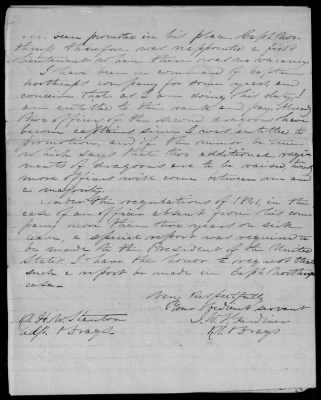 been promoted in his place. Capt. Nor-
throp therefore was reappointed a first
lieutenant when there was no vacancy.
I have been in command of Captain
Northrop's company for some years, and
conceive that as I am doing his duty, I
am entitled to the rank and pay. Already
two officers of the second dragoons have
become captains since I was entitled to
promotion, and if the rumor be true
which says that two additional regi-
ments of dragoons are to be raised, two
more officers will come between me and
a majority.
Under the regulations of 1841, in the
case of an officer absent from his com-
pany more than two years on sick
leave, a special report was required to
be made to the President of the United
States. I have the honor to request that
such a report be made in Capt. Northrop's
case.
Very Respectfully
Your obedient servant
Gardiner
Lt. 1 Drag's
Lt. H. W. Stanton
Adjt. 1 Drag's.